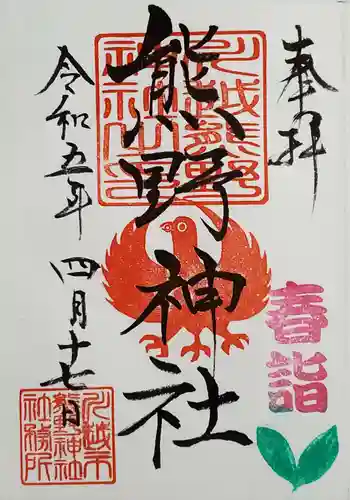 奉拝
川越熊野
神社之印
熊野神社
令和五年 四月十七日
春詣
川越市
熊野神社
社務所